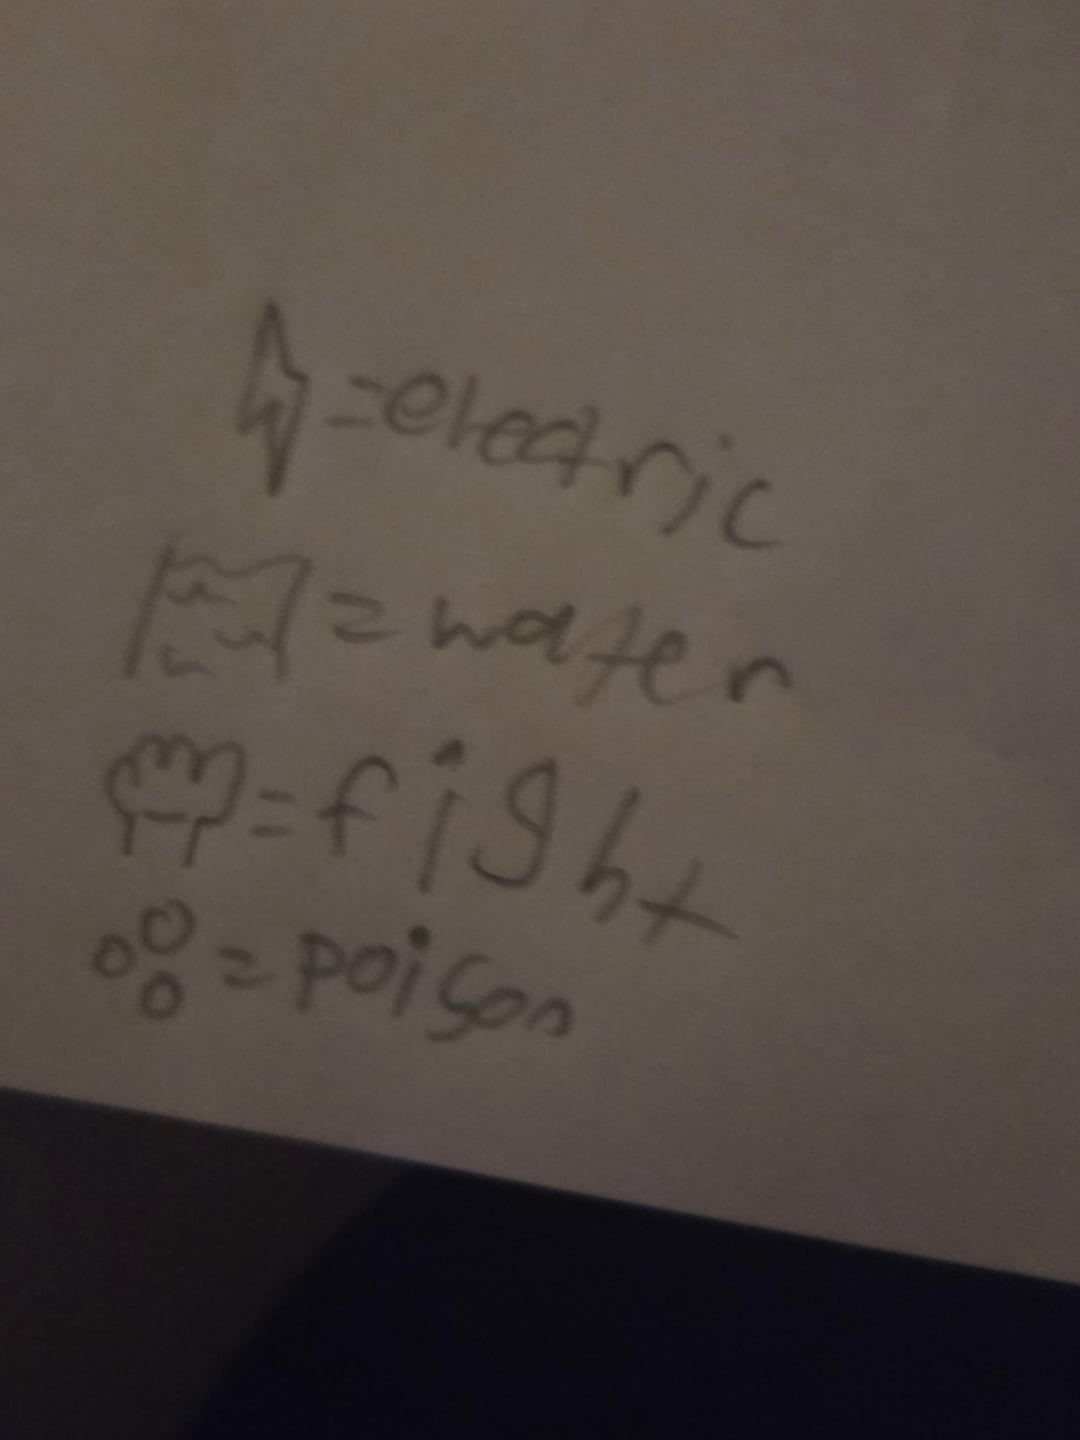 =electric
=water
=fight
=poison